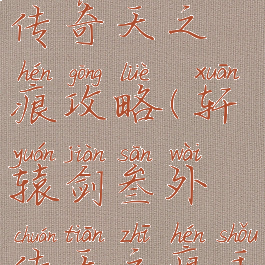 传奇天之
hén gōng lüè xuān
痕攻略(轩
yuán jiàn sān wài
辕剑叁外
chuán tiān zhī hén shǒu
传天之痕手